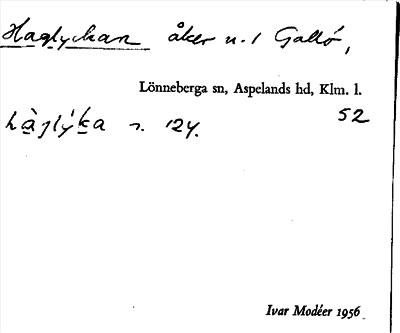 Haglyckan åker n. 1 Gallö,
Lönneberga sn, Aspelands hd, Klm. l.
52
124.
Ivar Modéer 1956